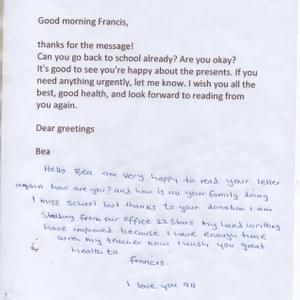 Good morning Francis,
thanks for the message!
Can you go back to school already? Are you okay?
It's good to see you're happy about the presents. If you
need anything urgently, let me know. I wish you all the
best, good health, and look forward to reading from
you again.
Dear greetings
Bea
Hello Bea am very happy to read your letter
again how are you? and how is all your family doing
I miss school but thanks to your donation I am
from our office 22 stars my hand writting
have improved because I have enough time
with my teacher now I wish you great
health to
francis
I love you all